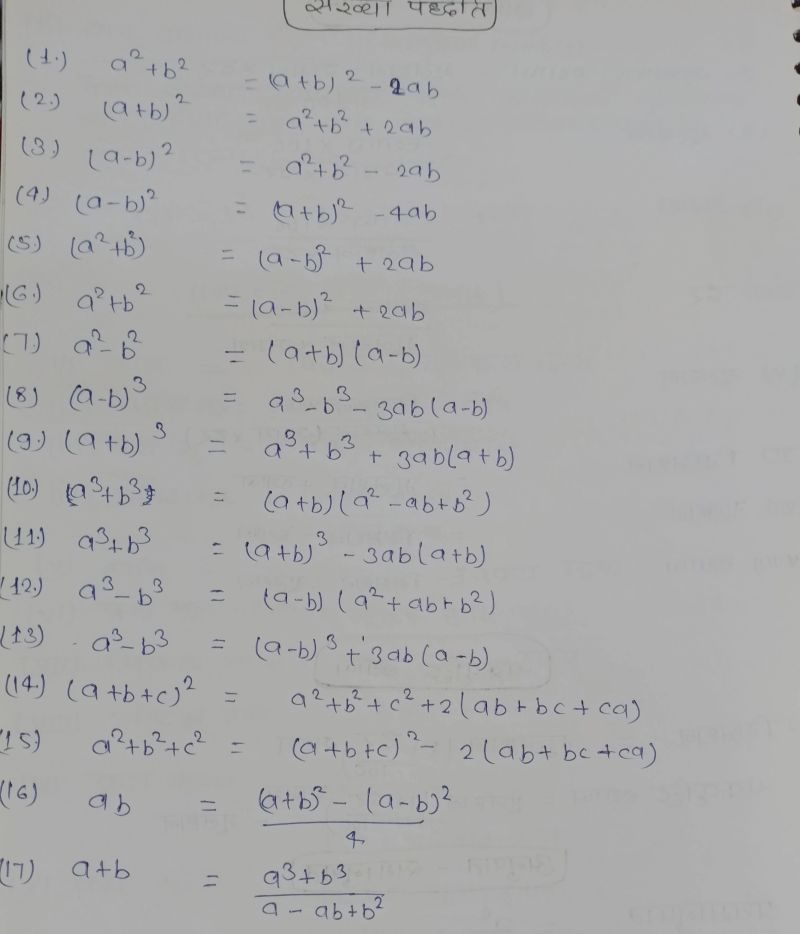 संख्या पद्धति
(1.) a²+b² = (a+b)² - 2ab
(2.) (a+b)² = a²+b² + 2ab
(3.) (a-b)² = a²+b² - 2ab
(4) (a-b)² = (a+b)² - 4ab
(5.) (a²+b²) = (a-b)² + 2ab
(6.) a²+b² = (a-b)² + 2ab
(7.) a²-b² = (a+b) (a-b)
(8) (a-b)³ = a³-b³ - 3ab(a-b)
(9.) (a+b)³ = a³+b³ + 3ab(a+b)
(10.) (a³+b³) = (a+b) (a²-ab+b²)
(11.) a³+b³ = (a+b)³ - 3ab(a+b)
(12.) a³-b³ = (a-b) (a²+ab+b²)
(13) a³-b³ = (a-b)³ + 3ab(a-b)
(14.) (a+b+c)² = a²+b²+c²+2(ab+bc+ca)
(15) a²+b²+c² = (a+b+c)² - 2(ab+bc+ca)
(16) ab = (a+b)² - (a-b)²
4
(17) a+b = a³+b³
a-ab+b²